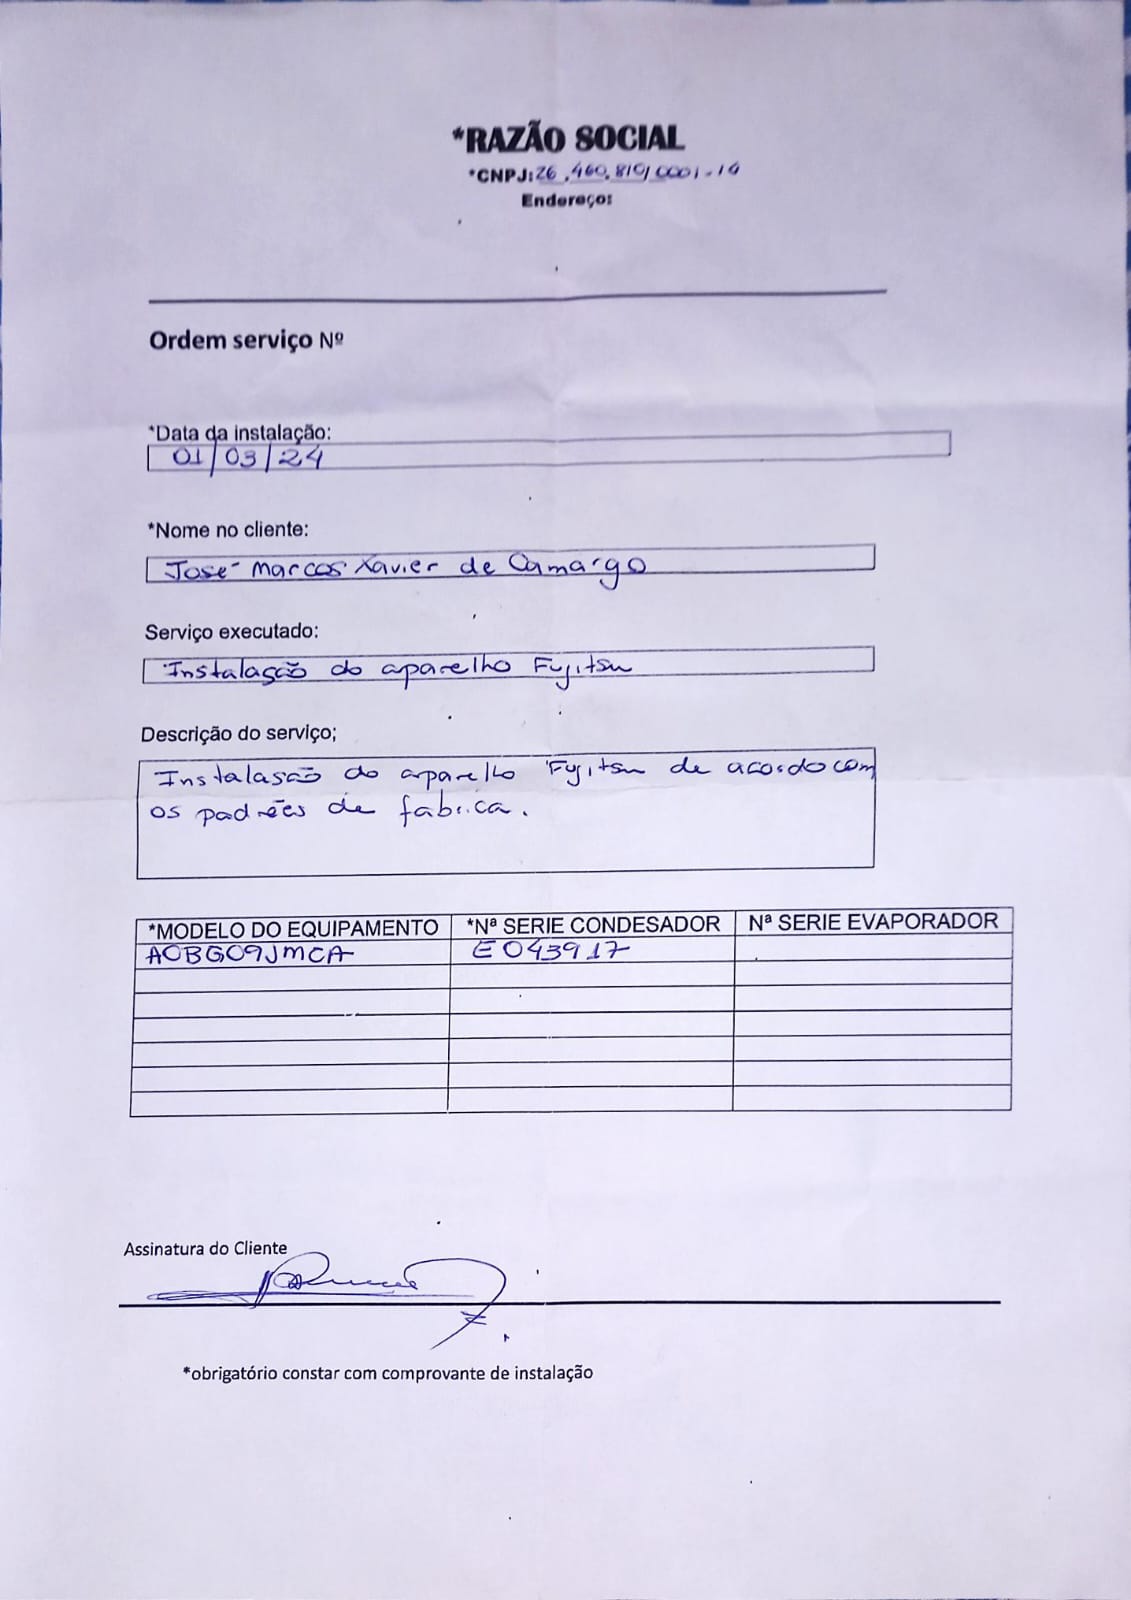 *RAZÃO SOCIAL
*CNPJ: 26.460.810/0001-10
Endereço:
Ordem serviço Nº
*Data da instalação:
01/03/24
*Nome no cliente:
José Marcos Xavier de Camargo
Serviço executado:
Instalação do aparelho Fujitsu
Descrição do serviço;
Instalasão do aparelho Fujitsu de acordo com
os padrões de fabrica.
*MODELO DO EQUIPAMENTO *Nª SERIE CONDESADOR Nª SERIE EVAPORADOR
AOBG09JMCA E043917
Assinatura do Cliente
*obrigatório constar com comprovante de instalação